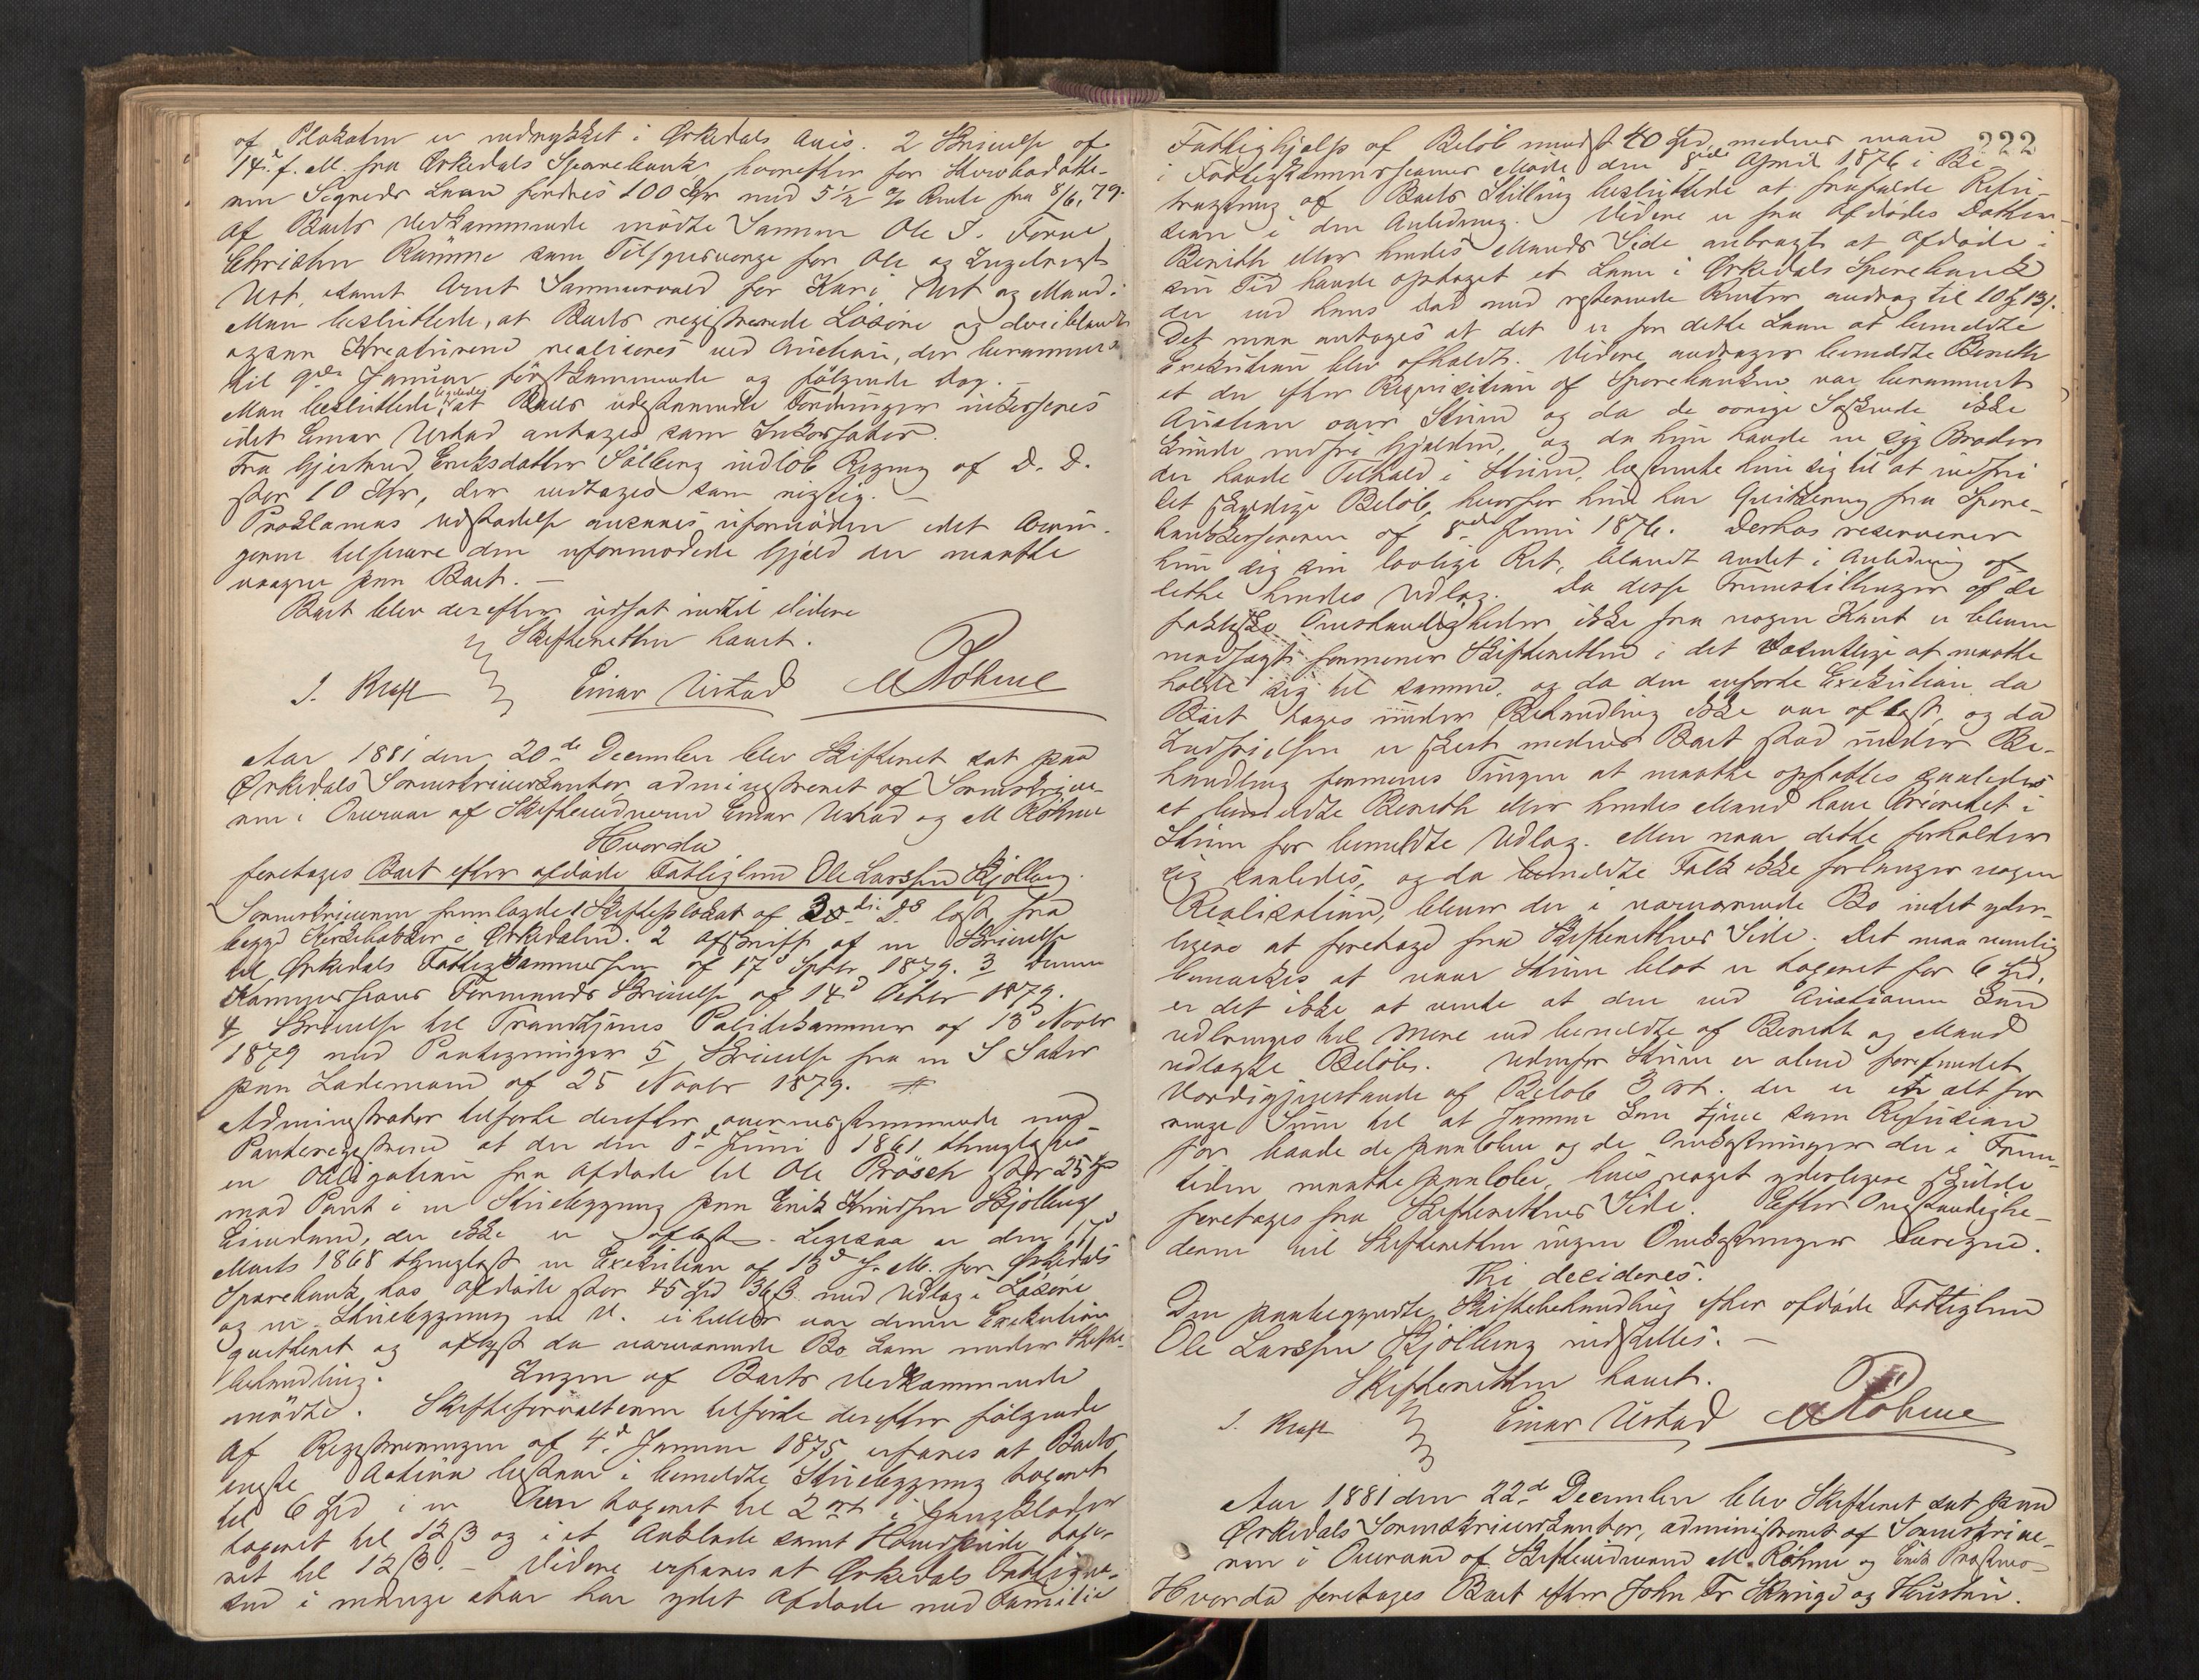 af Plakaten er indrykket i Ørkedals Avis. 2 Skrivelse af
14d. f. M. fra Ørkedals Sparebank, hvorefter for
Laan fordres 100 Kr med 5½ % Rente fra 8/6, 79.
Af Boets Vedkommende mødte Sønnen Ole J.
Christen som Tilsynsværge for Ole og Ingebrigt
Ust, samt Arnt for Kari Ust og Mand.
Man besluttede, at Boets registrerede Løsøre og deriblandt
ogsaa Kreaturene realiseres ved Auction, der berammes
til 9de Januar førstkommende og følgende Dag. –
Man besluttede ligeledes at Boets udestaaende Fordringer inkasseres
idet Einar Urstad antages som Inkassator.
Fra Gjertrud Eriksdatter Solberg indløb Regning af D. D.
stor 10 Kr, der vedtages som rigtig. –
Proklamas Udstedelse ansaaes ufornøden idet Arvin-
gerne tilsvare den uformodede Gjæld der maatte
paa Boet. –
Boet blev derefter udsat indtil videre
Skifteretten hævet.
J. Kraft Einar Urstad M Röhme
Aar 1881 den 20de December blev Skifteret sat paa
Ørkedals Sorenskriverkontor, administreret af Sorenskrive-
ren i Overvær af Skiftevidnerne Einar Urstad og M Röhme
Hvorda
foretages Boet efter afdøde Fattiglem Ole Larssen Kjølberg.
Sorenskriveren fremlagde 1 Skifteplakat af 30te D.s læst fra
begge Kirkebakker i Ørkedalen. 2 Afskrift af en Skrivelse
til Ørkedals Fattigkommission af 17d Septbr 1879. 3 Denne
Kommissions Formands Skrivelse af 14d Octbr 1879.
4 Skrivelse til Trondhjems Politikammer af 13d Novbr
1879 med Paategninger 5 Skrivelse fra en S Sæter
paa Lademoen af 25 Novbr 1879. #
Administrator tilførte derefter overensstemmende med
Panteregistrene at der den 8d Juni 1861 thinglæstes
en Obligation fra Afdøde til Ole Brøsch stor 25 Spd
mod Pant i en Stuebygning paa Erik Knudsen Kjølberg
Eiendom, der ikke er aflæst. Ligesaa er den 17d
Marts 1868 thinglæst en Execution af 13d s. M. for Ørkedals
Sparebank hos Afdøde stor 45 Spd 36 β med Udlæg i Løsøre
og en Stuebygning m. v. ei heller var denne Execution
qvitteret og aflyst da nærværende Bo kom under Skifte-
behandling. Ingen af Boets Vedkommende
mødte. Skifteforvalteren tilførte derefter følgende
Af Registreringen af 4d Januar 1875 erfares at Boets
eneste Activa bestaar i bemeldte Stuebygning taxeret
til 6 Spd i en Ovn taxeret til 2 Ort i Gangklæder
taxeret til 12 β og i et Anklæde samt taxe-
ret til 12 β. – Videre erfares at Ørkedals Fattigvæ-
sen i mange Aar har ydet Afdøde med Familie
222
Fattighjælp af Beløb mindst 40 Spd, medens man
i Fattigkommissionens Møde den 8de April 1876 i Be-
tragtning af Boets Stilling besluttede at frafalde Refu-
sion i den Anledning. Videre er fra Afdødes Datter
Bereth eller hendes Mands Side anbragt at Afdøde i
sin Tid havde optaget et Laan i Ørkedals Sparebank
der ved hans Død med resterende Renter androg til 10 Spd 13 β.
Det maa antages at det er for dette Laan at bemeldte
Execution blev afholdt. Videre andrages bemeldte Bereth
at der efter Requisition af Sparebanken var berammet
Auction over Stuen og da de øvrige Søskende ikke
kunde indfri Gjælden, og da hun havde en syg Broder
der havde Tilhold i Stuen, bestemte hun sig til at indfri
det skyldige Beløb, hvorfor hun har Qvittering fra Spare-
bankkassereren af 8de Juni 1876. Derhos reserverer
hun sig sin lovlige Ret, blandt andet i Anledning af
dette hendes Udlæg. Da disse Fremstillinger af de
faktiske Omstændigheder ikke fra nogen Kant er bleven
modsagt formener Skifteretten i det Væsentlige at maatte
holde sig til samme, og da den anførte Execution da
Boet toges under Behandling ikke var aflæst, og da
Indfrielsen er skeet medens Boet stod under Be-
handling formenes Tingen at maatte opfattes saaledes
at bemeldte Bereth eller hendes Mand have Prioritet i
Stuen for bemeldte Udlæg. Men naar dette forholder
sig saaledes, og da bemeldte Folk ikke forlanger nogen
Realisation, bliver der i nærværende Bo intet yder-
ligere at foretage fra Skifterettens Side. Det maa nemlig
bemærkes at naar Stuen blot er taxeret for 6 Spd,
er det ikke at vente at den ved Auctionen kan
udbringes til mere end bemeldte af Bereth og Mand
udlagte Beløb. Udenfor Stuen er alene forefundet
Værdigjenstande af Beløb 3 Ort. der er et alt for
ringe Sum til at samme kan tjene som Refusion
for baade de paaløbne og de Omkostninger der i Frem-
tiden maatte paaløbe, hvis noget yderligere skulde
foretages fra Skifterettens Side. Efter Omstændighe-
derne vil Skifteretten ingen Omkostninger beregne.
Thi decideres.
Den paabegyndte Skiftebehandling efter afdøde Fattiglem
Ole Larssen Kjølberg indstilles. –
Skifteretten hævet.
J. Kraft Einar Urstad M Röhme
Aar 1881 den 22de December blev Skifteret sat paa
Ørkedals Sorenskriverkontor, administreret af Sorenskrive-
ren i Overvær af Skiftevidnerne M. Röhme og Erik
Hvorda foretages Boet efter John Fr og Hustru.